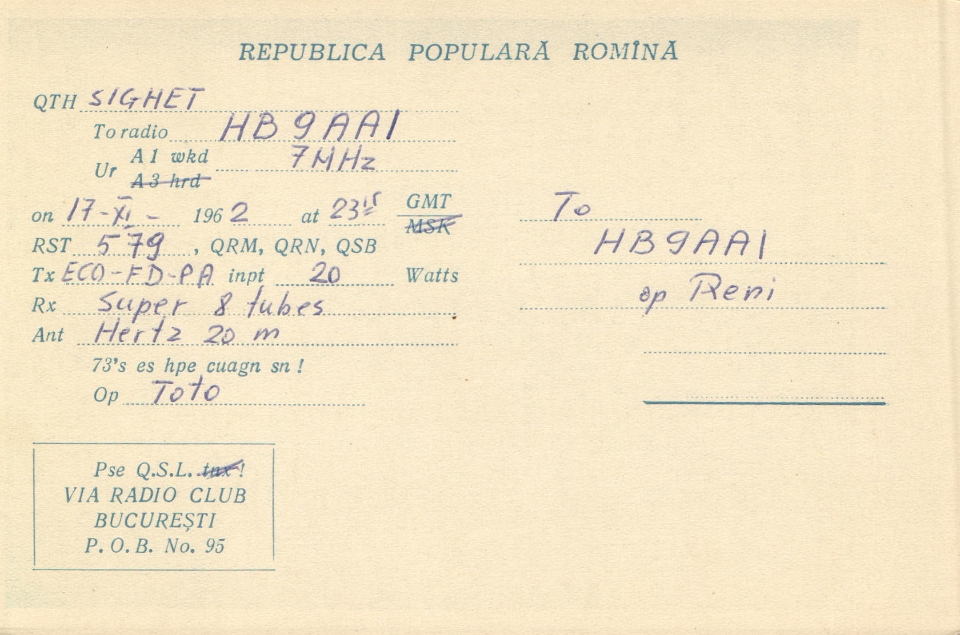 REPUBLICA POPULARĂ ROMÎNĂ
QTH SIGHET
To radio HB9AA1
Ur A1 wkd 7MHz
A3 hrd
on 17-XI- 1962 at 23 15 GMT
MSK
RST 579, QRM, QRN, QSB
Tx ECO-FD-PA inpt 20 Watts
Rx Super 8 tubes
Ant Hertz 20 m
73's es hpe cuagn sn!
Op Toto
Pse Q.S.L. tnx!
VIA RADIO CLUB
BUCUREȘTI
P.O.B. No. 95
To
HB9AA1
op Reni